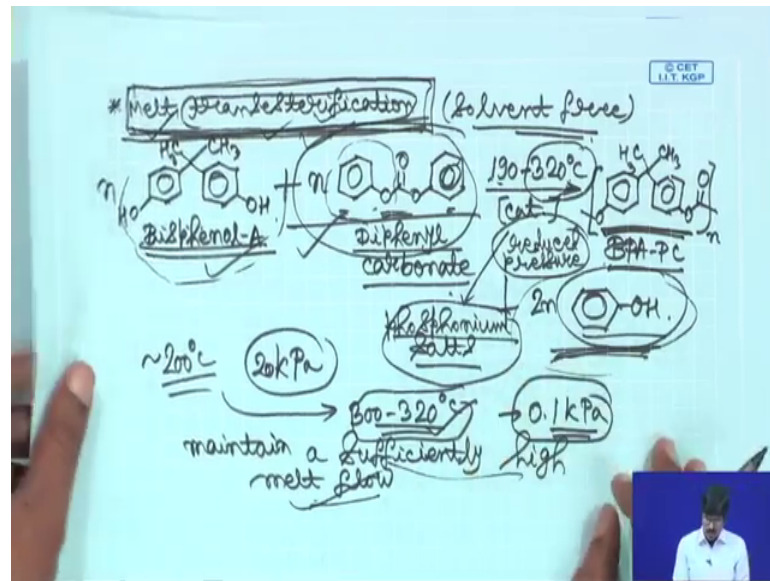 © CET
I.I.T. KGP
* Melt transesterification (Solvent free)
H3C CH3
n HO OH + n O O O 190-320°C [cat.] H3C CH3 O O O n
Bisphenol-A Diphenyl carbonate reduced pressure BPA-PC
phosphonium salts 2n OH.
~200°C 20kPa
300-320°C → 0.1kPa
maintain a sufficiently high
melt flow